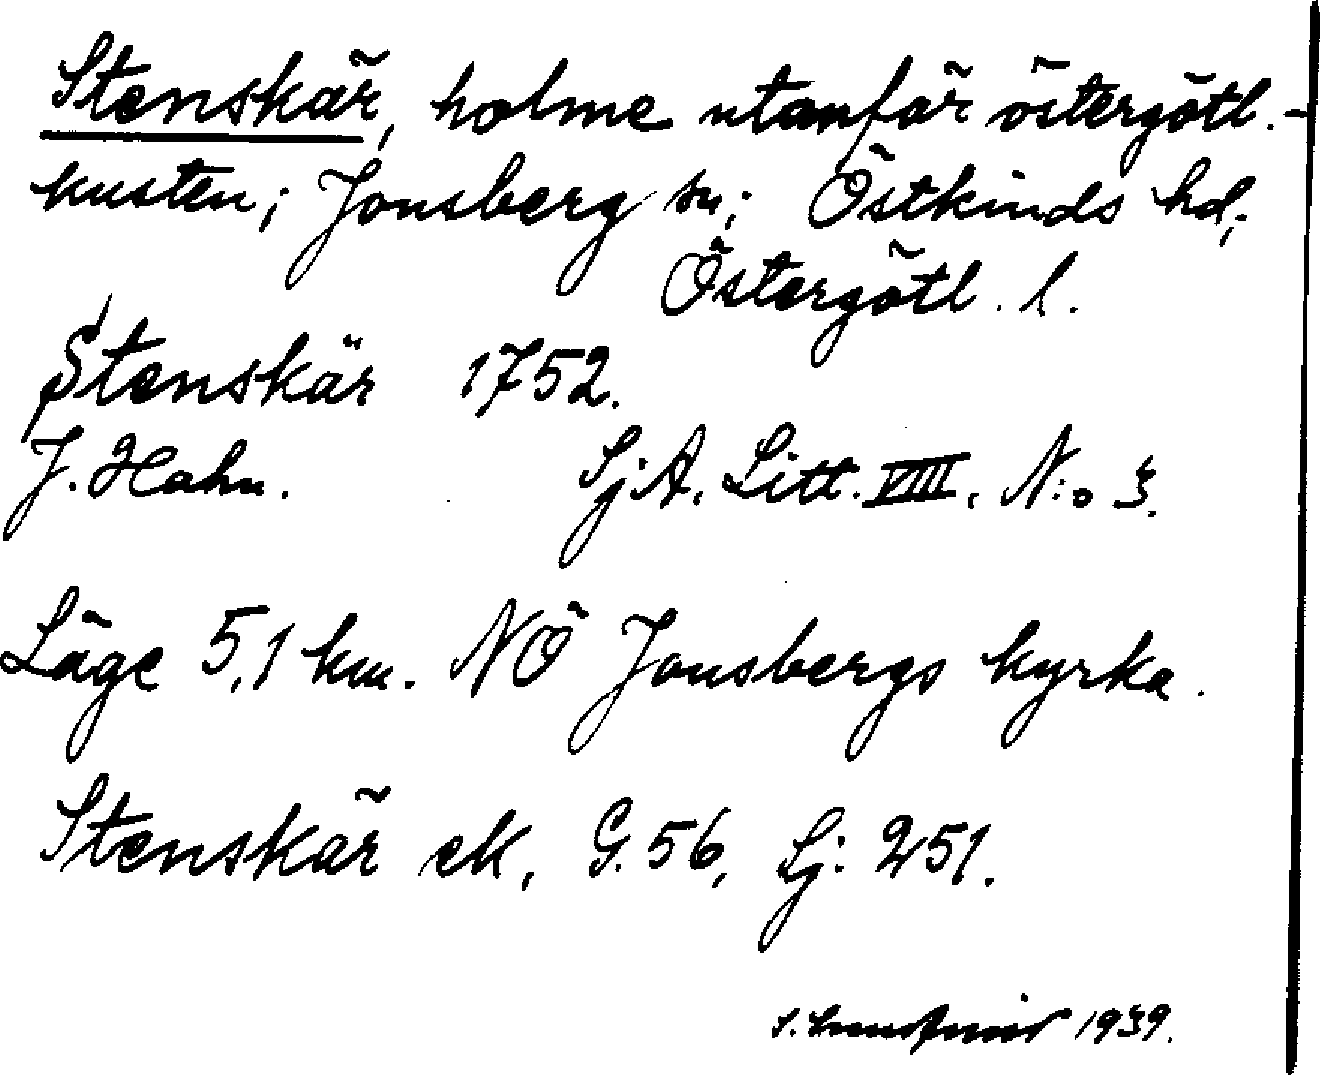 Stenskär, holme utanför östergötl.-
kusten; Jonsberg sn; Östkinds hd,
Östergötl. l.
Stenskär 1752.
J. Hahn. Sj.A. Litt. VIII, N:o 3.
Läge 5,1 km. NÖ Jonsbergs kyrka.
Stenskär ek, G. 56, Sj: 251.
S. 1939.